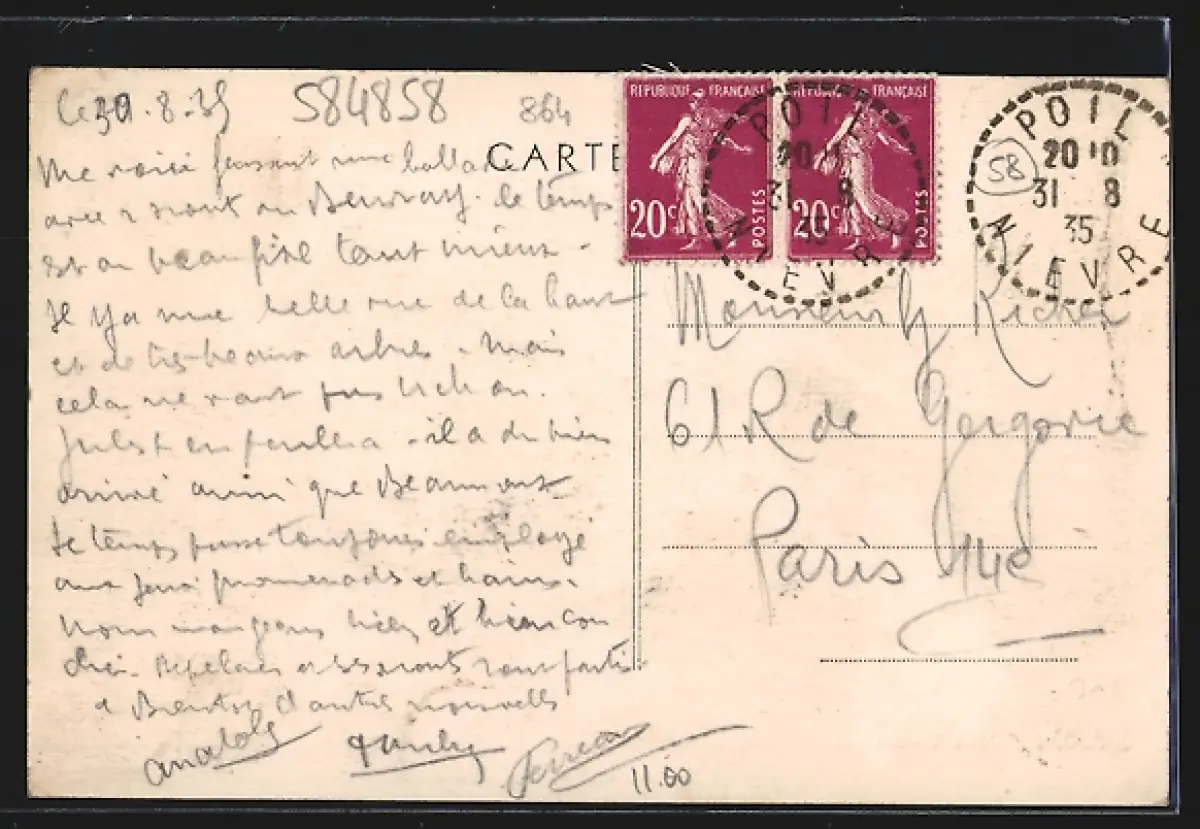 Le 30.8.35 584858 864
Me voici faisant une ballade
avec Mont au Beuvray. le temps
est au beau fixe tant mieux.
Il y a une belle vue de là haut
et de très beaux arbres. Mais
cela ne vaut pas
il a du bien
arrivé ainsi que Beaumont
Le temps passe toujours employé
aux jeux promenades et bains.
Nous mangeons bien et bien cou
ché. sont partis
à Bientôt d'autres nouvelles
CARTE
REPUBLIQUE FRANÇAISE
20c POSTES
REPUBLIQUE FRANÇAISE
20c POSTES
POIL
20 10
31 8
35
NIEVRE
POIL
31 8
NIEVRE
58
Monsieur Richer
61 R de Gergovie
Paris 14e
11.00